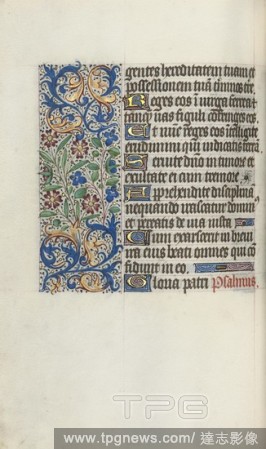 gentes hereditatem tuam et
possessionem tuā tm̄nos tre
Reges eos ī uirga ferrea
tanq̄ uas figuli cōfringes eos
Et nūc reges intelligite
erudimini qui iudicatis terrā
Seruite dn̄o in timore et
exultate ei cum tremore
Apprehendite disciplinā
nequando irascatur domin
et pereatis de uia iusta
Cum exarserit in breui
ira eius beati omnes qui cō
fidunt in eo
Gloria patri Psalmus
TPG
www.tpgnews.com / 達志影像